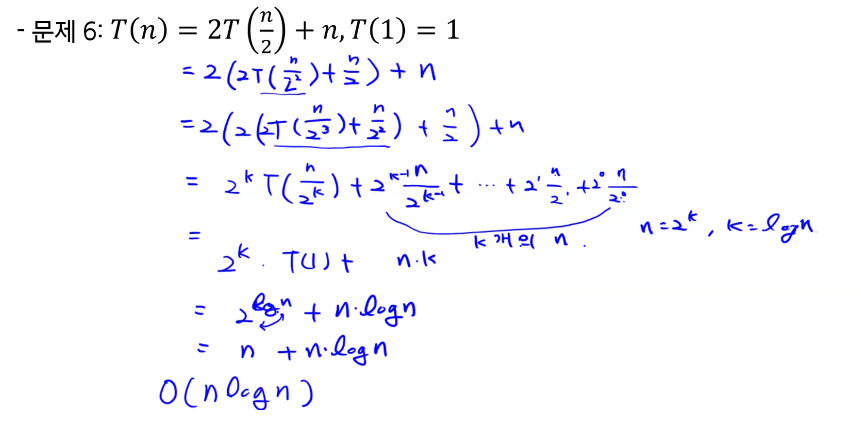 - 문제 6: T(n) = 2T(n/2) + n, T(1) = 1
= 2(2T(n/2²)+n/2) + n
= 2(2(2T(n/2³)+n/2²) + n/2) + n
= 2^k T(n/2^k) + 2^(k-1) n/2^(k-1) + ⋯ + 2¹ n/2¹ + 2⁰ n/2⁰
k개의 n.
n=2^k, k=logn
= 2^k · T(1) + n·k
= 2^(logn) + n·logn
= n + n·logn
O(n logn)